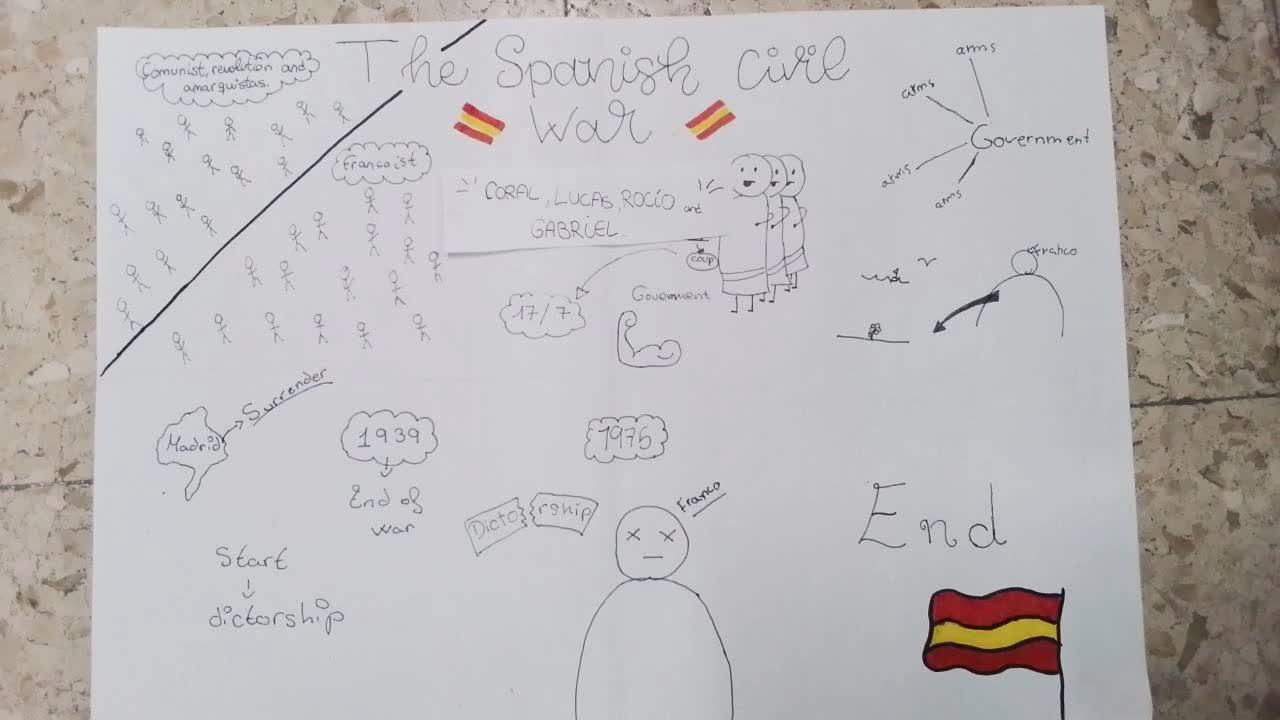 The Spanish Civil
War
Comunist, revolution and
amarquistas.
Francoist
CORAL, LUCAS, ROCÍO and
GABRIEL.
arms
arms
Government
arms
arms
coup
17/7
Government
Franco
Madrid
Surrender
1939
End of
war
1975
Dicto rship
Franco
Start
dictorship
End